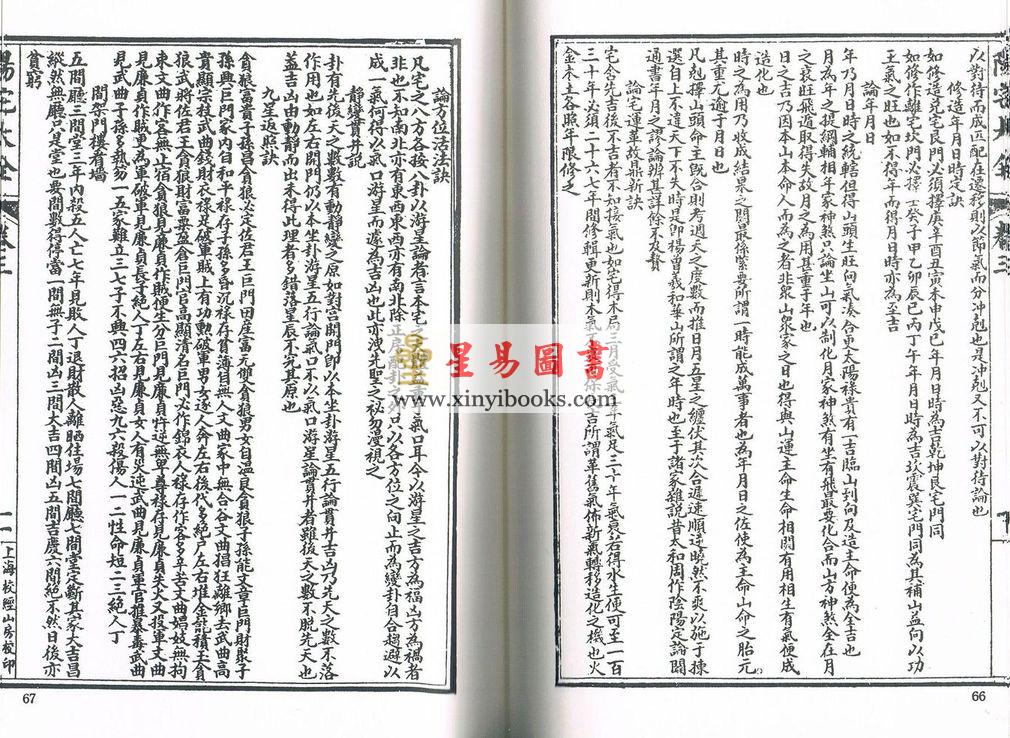 以對待而成匹配在遷移則以節氣而分冲剋也是冲剋又不可以對待論也
修造年月日時定訣
如修造兌宅艮門必須擇庚午辛酉丑寅未申戌巳年月日時為吉乾坤艮宅門同
如修作離宅坎門必擇壬癸子甲乙卯辰巳丙丁午年月日時為吉坎震巽宅門同為其補山益向以功
王氣之旺也如不得年而得月日時亦為至吉
論年月日
年乃月日時之統轄但得山頭生旺向氣湊合更太陽祿貴有一吉臨山到向及造主命便為全吉也
月為年之提綱輔相乎年家神煞只論坐山可以制化月家神煞有坐有飛最要化合而山方神煞全在月
之衰旺飛遁取得失故月之為用甚重于年也
日之吉乃因本山本命人而為之者非眾山眾家之日也得與山運主命生命相關有用相生有氣便成
造化也
時之為用乃收成結果之關最係緊要所謂一時能成萬事者也為年月日之佐使為王命山命之胎元
其重尤逾于月日也
凡剋擇山頭命主既合則考週天之度數而推日月五星之纏伏其次合遲速順逆曉然不爽以施于揀
選自上不違天下不失時是即楊曾義和華山所謂之年時也至于諸家雜說昔太和周作陰陽定論闢
通書年月之謬論辨甚詳餘不友贅
論宅運革故鼎新訣
宅舍先吉後不吉者不知接氣也如宅得水局三月受氣
年氣足三十年氣衰若得水生便可至一百
三十年必須二十六七年間修輯更新則本氣
吉所謂革舊氣佈新氣轉移造化之機也火
金木土各照年限修之
66
論方位活法訣
凡宅之八方各按八卦以游星論者言本宅
氣口耳今以游星之吉方為福凶方為禍者
非也不知南北亦有東西東西亦有南北除正
只以各方位之向止而為變卦自合趨避以
成一氣何得以氣口游星而遂為吉凶也此亦洩先聖之秘勿漫視之
靜變貫井說
卦有先後天之數有動靜變之原如對宮開門即以本坐卦游星五行論貫井吉凶乃先天之數不落
作用也如左右開門仍以本坐卦游星五行論氣口不以氣口游星論貫井者雖後天之數不脫先天也
蓋吉凶由動靜而出未得此理者多錯落星辰不究其原也
九星返照訣
貪狼富貴子孫昌貪狼必定佐君王巨門田産富元雙貪狼男女自溫良貪狼子孫能文章巨門財聚子
孫興巨門家內自和平祿存子孫多昏沉祿存貧薄目無人文曲家中無合谷文曲猖狂離鄉去武曲高
貴顯宗枝武曲錢財衣祿足破軍賊上有功勳破軍男女逐人奔左右後代多絕户左右堆金餙積玉貪
狼武將佐君王貪狼財富粟盈倉巨門官高顯清名巨門必作錦衣人祿存作客多辛苦文曲娼妓無拘
東文曲作賊不止宿貪狼見廉貞作賊便生分巨門見廉貞忤逆無卑尊祿存見廉貞失火又投軍文曲
見廉貞作賊更為軍破軍見廉貞長子絕人丁左右見廉貞女人有災迍武曲見廉貞軍官推篡毒武曲
見武曲子孫多執勿一五家難立三七子不興四六招凶惡九六殺傷人一二性命短二三絕人丁
間架門樓看墻
五間廳三間堂三年內殺五人亡七年見敗人丁退財散人離晒住場七間廳七間堂定斷其家大吉昌
縱然無廳只是堂也要間數得停當一間無子二間凶三間大吉四間凶五間吉慶六間絕不然日後亦
貧窮
陽宅大全
卷三
上海校經山房校印
67
星易圖書
www.xinyibooks.com